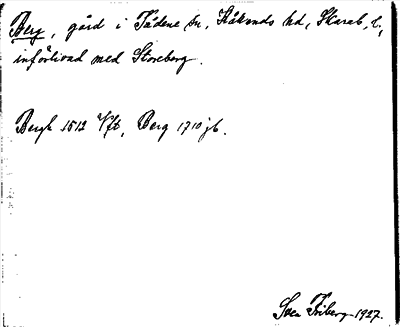 Berg, gård i Tådene sn, Kåkinds hd, Skarab. l.,
införlivad med Storeberg.
Bergh 1512 Vft, Berg 1710 jb.
Sven Friberg 1927.